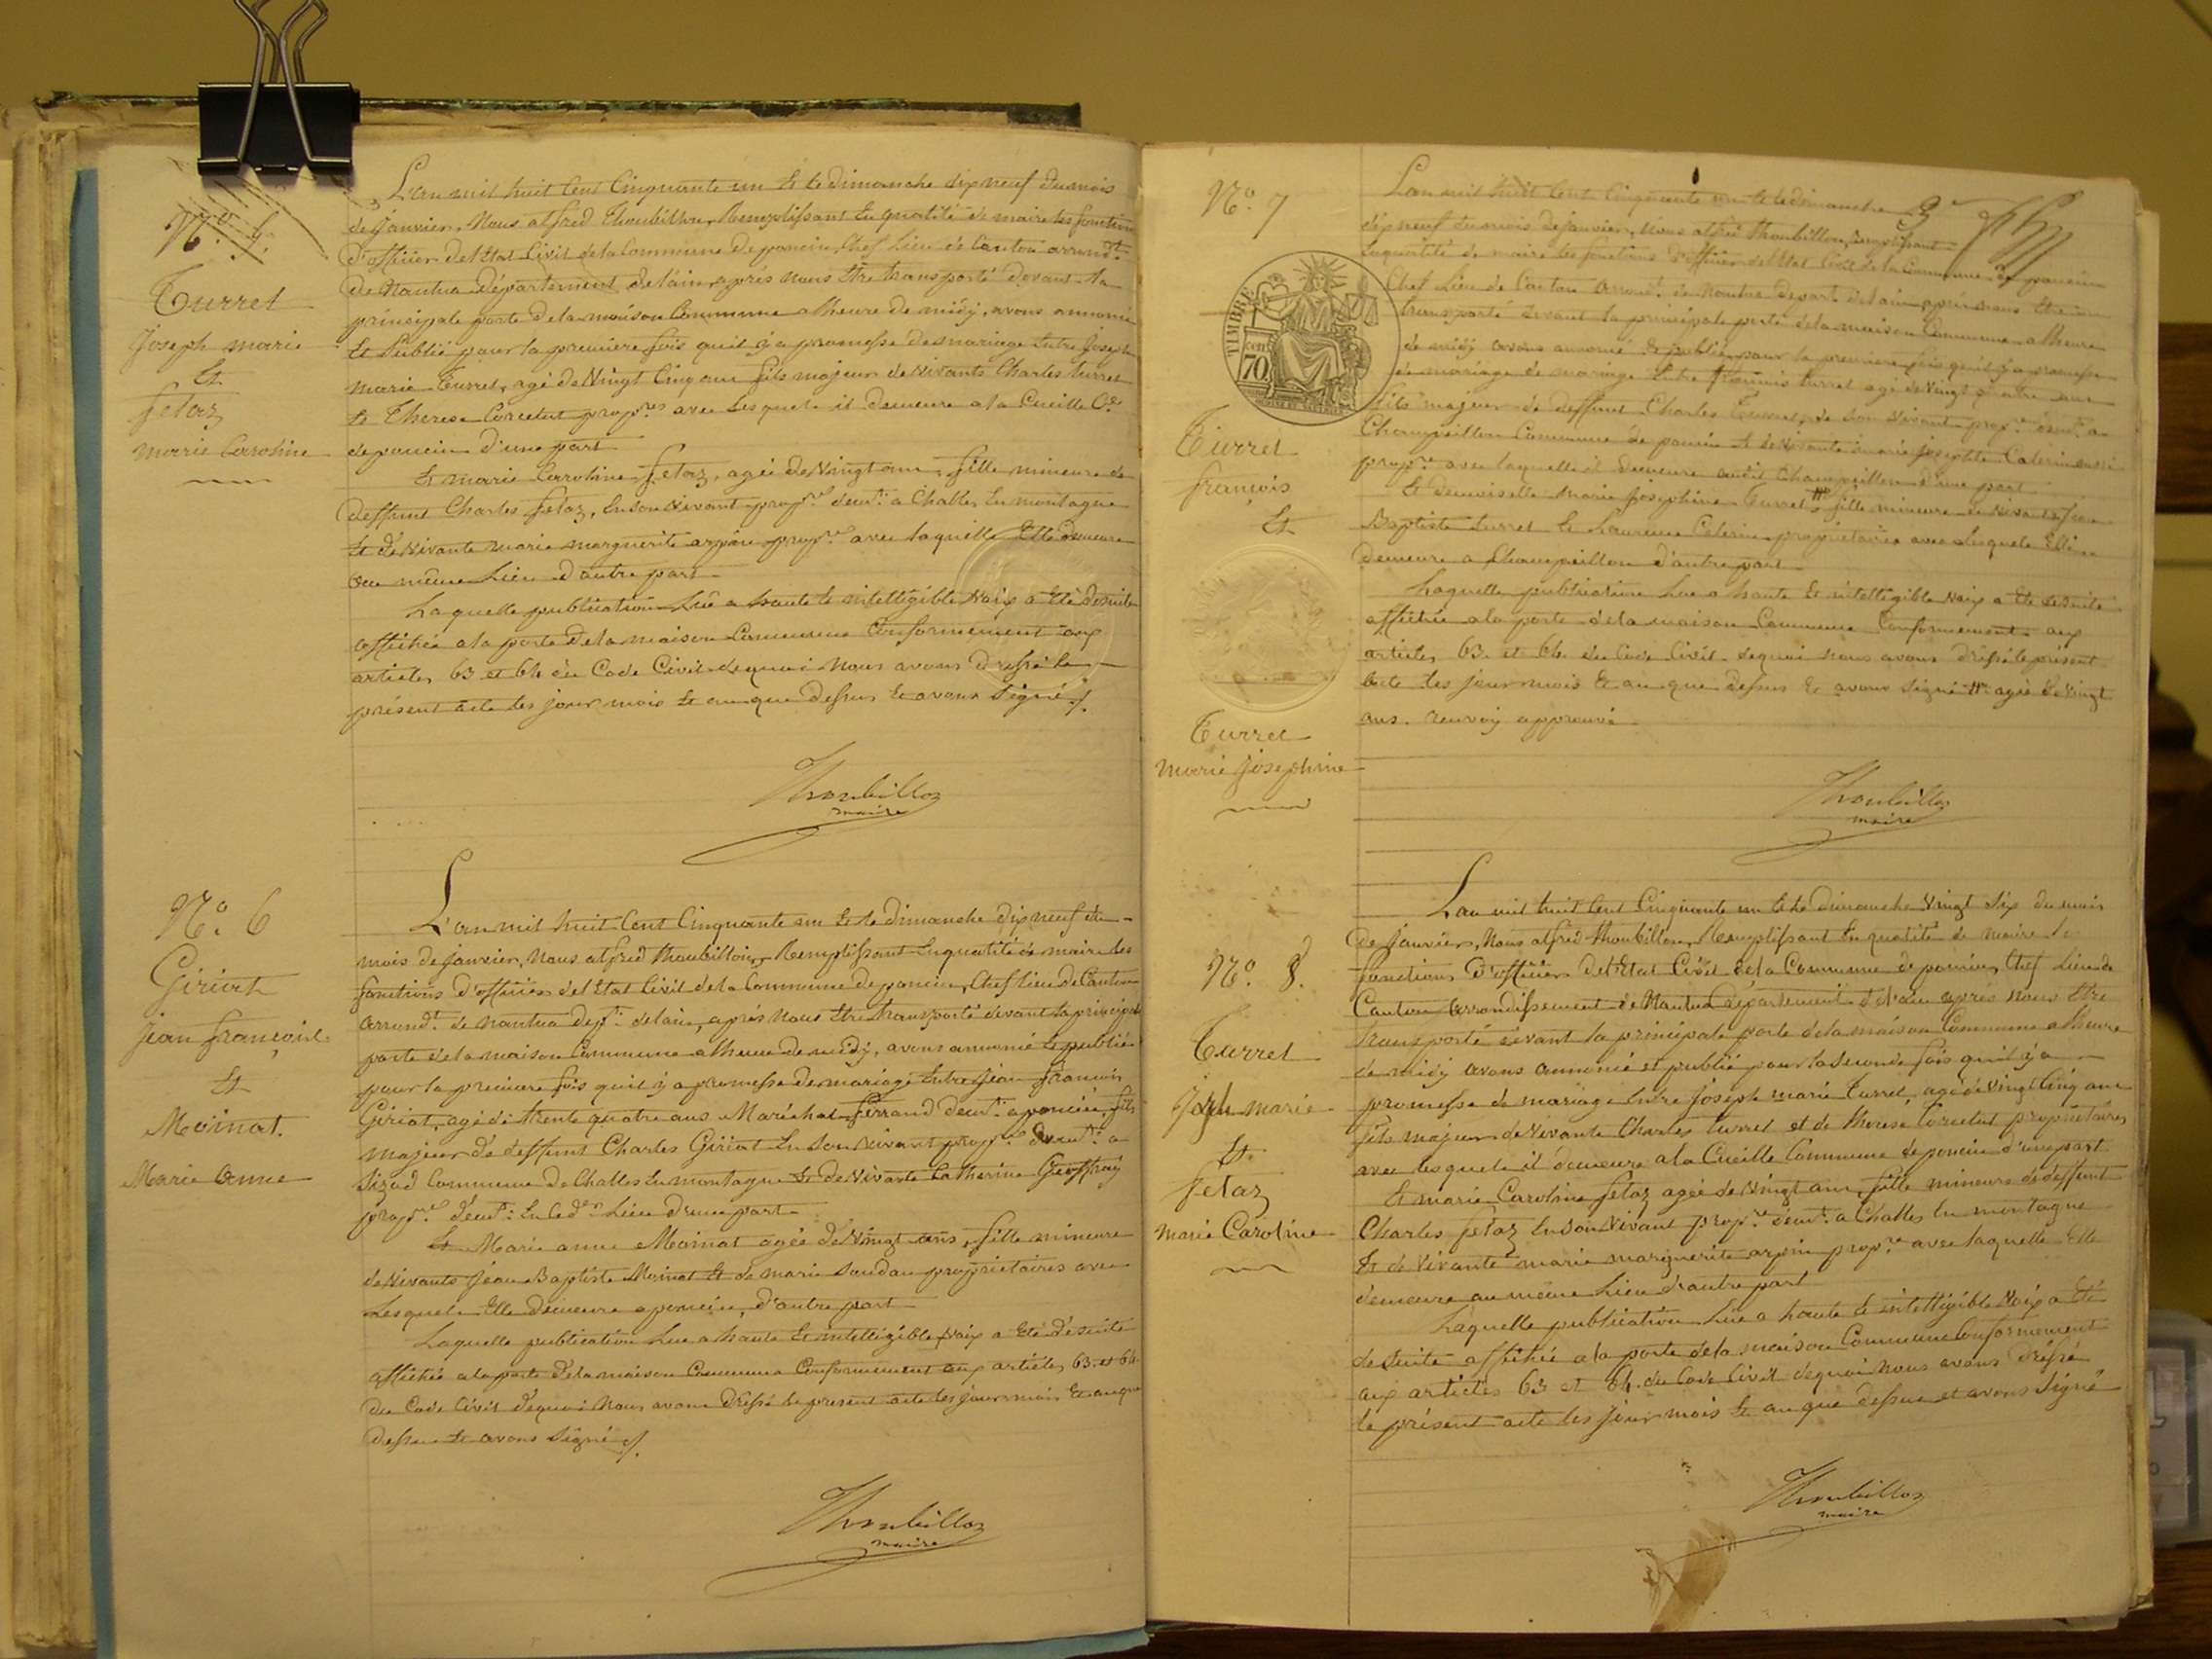 N.° 5.
Turrel
Joseph marie
Et
fetaz
marie Caroline
L'an mil huit Cent Cinquante un Et le dimanche dix neuf du mois
de Janvier, Nous alfred Thoubillon, Remplissant En qualité de maire les fonctions
d'officier de l'Etat Civil de la Commune de poncin, Chef Lieu de Canton arrond.t
de Nantua Département de l'ain, après nous Etre transporté devant la
principale porte de la maison Commune a l'heure de midy, avons annoncé
Et Publié pour la premiere fois quil y a promesse de mariage Entre Joseph
marie Turrel, agé de Vingt Cinq ans fils majeur de Vivants Charles turrel
Et Therese Corcelut prop.res avec lesquels il demeure a la Cueille C.e
de poncin d'une part
Et marie Caroline fetaz, agée de Vingt ans, fille mineure de
deffunt Charles fetaz, En son Vivant prop.re demt. a Challes En montagne
Et de Vivante marie marguerite arpin prop.re avec laquelle Elle demeure
au même Lieu d'autre part
Laquelle publication Lue a haute Et intelligible Voix a Eté de suite
affichée a la porte de la maison Commune Conformement aux
articles 63 et 64 du Code Civil de quoi Nous avons dressé le
présent acte les jour mois Et an que dessus Et avons Signé ./.
Thoubillon
maire
N.° 6
Giriat
Jean françois
Et
Moinat.
Marie Anne
L'an mil huit Cent Cinquante un Et le dimanche dix neuf du
mois de janvier, Nous alfred thoubillon, Remplissant En qualité de maire les
fonctions d'officier de l'Etat Civil de la Commune de poncin, Chef lieu de Canton
arrond.t de nantua dep.t de lain, après Nous Etre transporté devant la principale
porte de la maison Commune a l'heure de midy, avons annoncé Et publié
pour la premiere fois quil y a promesse de mariage Entre Jean francois
Giriat, agé de trente quatre ans Maréchal ferrand demt. a poncin, fils
majeur de deffunt Charles Giriat En son vivant prop.re demt. a
Sizod Commune de Challes En montagne Et de Vivante Catherine Geoffray
prop.re demt. En Ced.r Lieu d'une part
Et Marie anne Moinat agée de Vingt ans, fille mineure
de Vivants Jean Baptiste Moinat Et de marie Soudan propriétaires avec
Lesquels Elle demeure a poncin, d'autre part
Laquelle publication Lue a haute Et intelligible Voix a Eté de suite
affichée a la porte de la maison Commune Conformement aux articles 63. et 64
du Code Civil de quoi Nous avons dressé le present acte les jour mois Et an que
dessus Et avons Signé ./.
Thoubillon
maire
N.° 7
TIMBRE
70 cen
Turrel
françois
Et
Turrel
Marie Josephine
L'an mil huit Cent Cinquante un Et le dimanche
dix neuf du mois de janvier, Nous alfred thoubillon, Remplissant
En qualité de maire les fonctions d'officier de l'Etat Civil de la Commune de poncin
Chef Lieu de Canton arrond.t de Nantua depart. de l'ain, après nous Etre
transporté devant la principale porte de la maison Commune a l'heure
de midy avons annoncé Et publié pour la premiere fois quil y a promesse
de mariage de mariage Entre francois turrel agé de Vingt quatre ans
fils majeur de deffunt Charles Turrel, de son Vivant prop.re demt. a
Champeillon Commune de poncin Et de Vivante marie josephte Caterin aussi
prop.re avec laquelle il demeure audit Champeillon d'une part
Et demoiselle Marie Josephine Turrel, fille mineure de Vivants Jean
Baptiste turrel Et Laurence Caterin propriétaires avec lesquels Elle
demeure a Champeillon d'autre part
Laquelle publication Lue a haute Et intelligible Voix a Eté de suite
affichée a la porte de la maison Commune Conformement aux
articles 63. et 64. du Code Civil de quoi nous avons dressé le présent
acte les jour mois Et an que dessus Et avons Signé agée de Vingt
ans. renvoy approuvé
Thoubillon
maire
N.° 8.
Turrel
Joseph marie
Et
fetaz
marie Caroline
L'an mil huit Cent Cinquante un Et le dimanche Vingt Six du mois
de Janvier, Nous alfred Thoubillon, Remplissant En qualité de maire les
fonctions d'officier de l'Etat Civil de la Commune de poncin, Chef Lieu de
Canton arrondissement de Nantua Département de l'ain après nous Etre
transporté devant la principale porte de la maison Commune a l'heure
de midy avons annoncé et publié pour la Seconde fois quil y a
promesse de mariage Entre Joseph marie Turrel, agé de Vingt Cinq ans
fils majeur de Vivants Charles turrel et de therese Corcelut propriétaires
avec lesquels il demeure a la Cueille Commune de poncin d'une part
Et marie Caroline fetaz agée de Vingt ans, fille mineure de deffunt
Charles fetaz En son Vivant prop.re demt. a Challes En montagne
Et de Vivante marie marguerite arpin prop.re avec laquelle Elle
demeure au même Lieu d'autre part
Laquelle publication Lue a haute Et intelligible Voix a Eté
de suite affichée a la porte de la maison Commune Conformement
aux articles 63 et 64. du Code Civil de quoi nous avons dressé
le présent acte les jour mois Et an que dessus et avons Signé
Thoubillon
maire